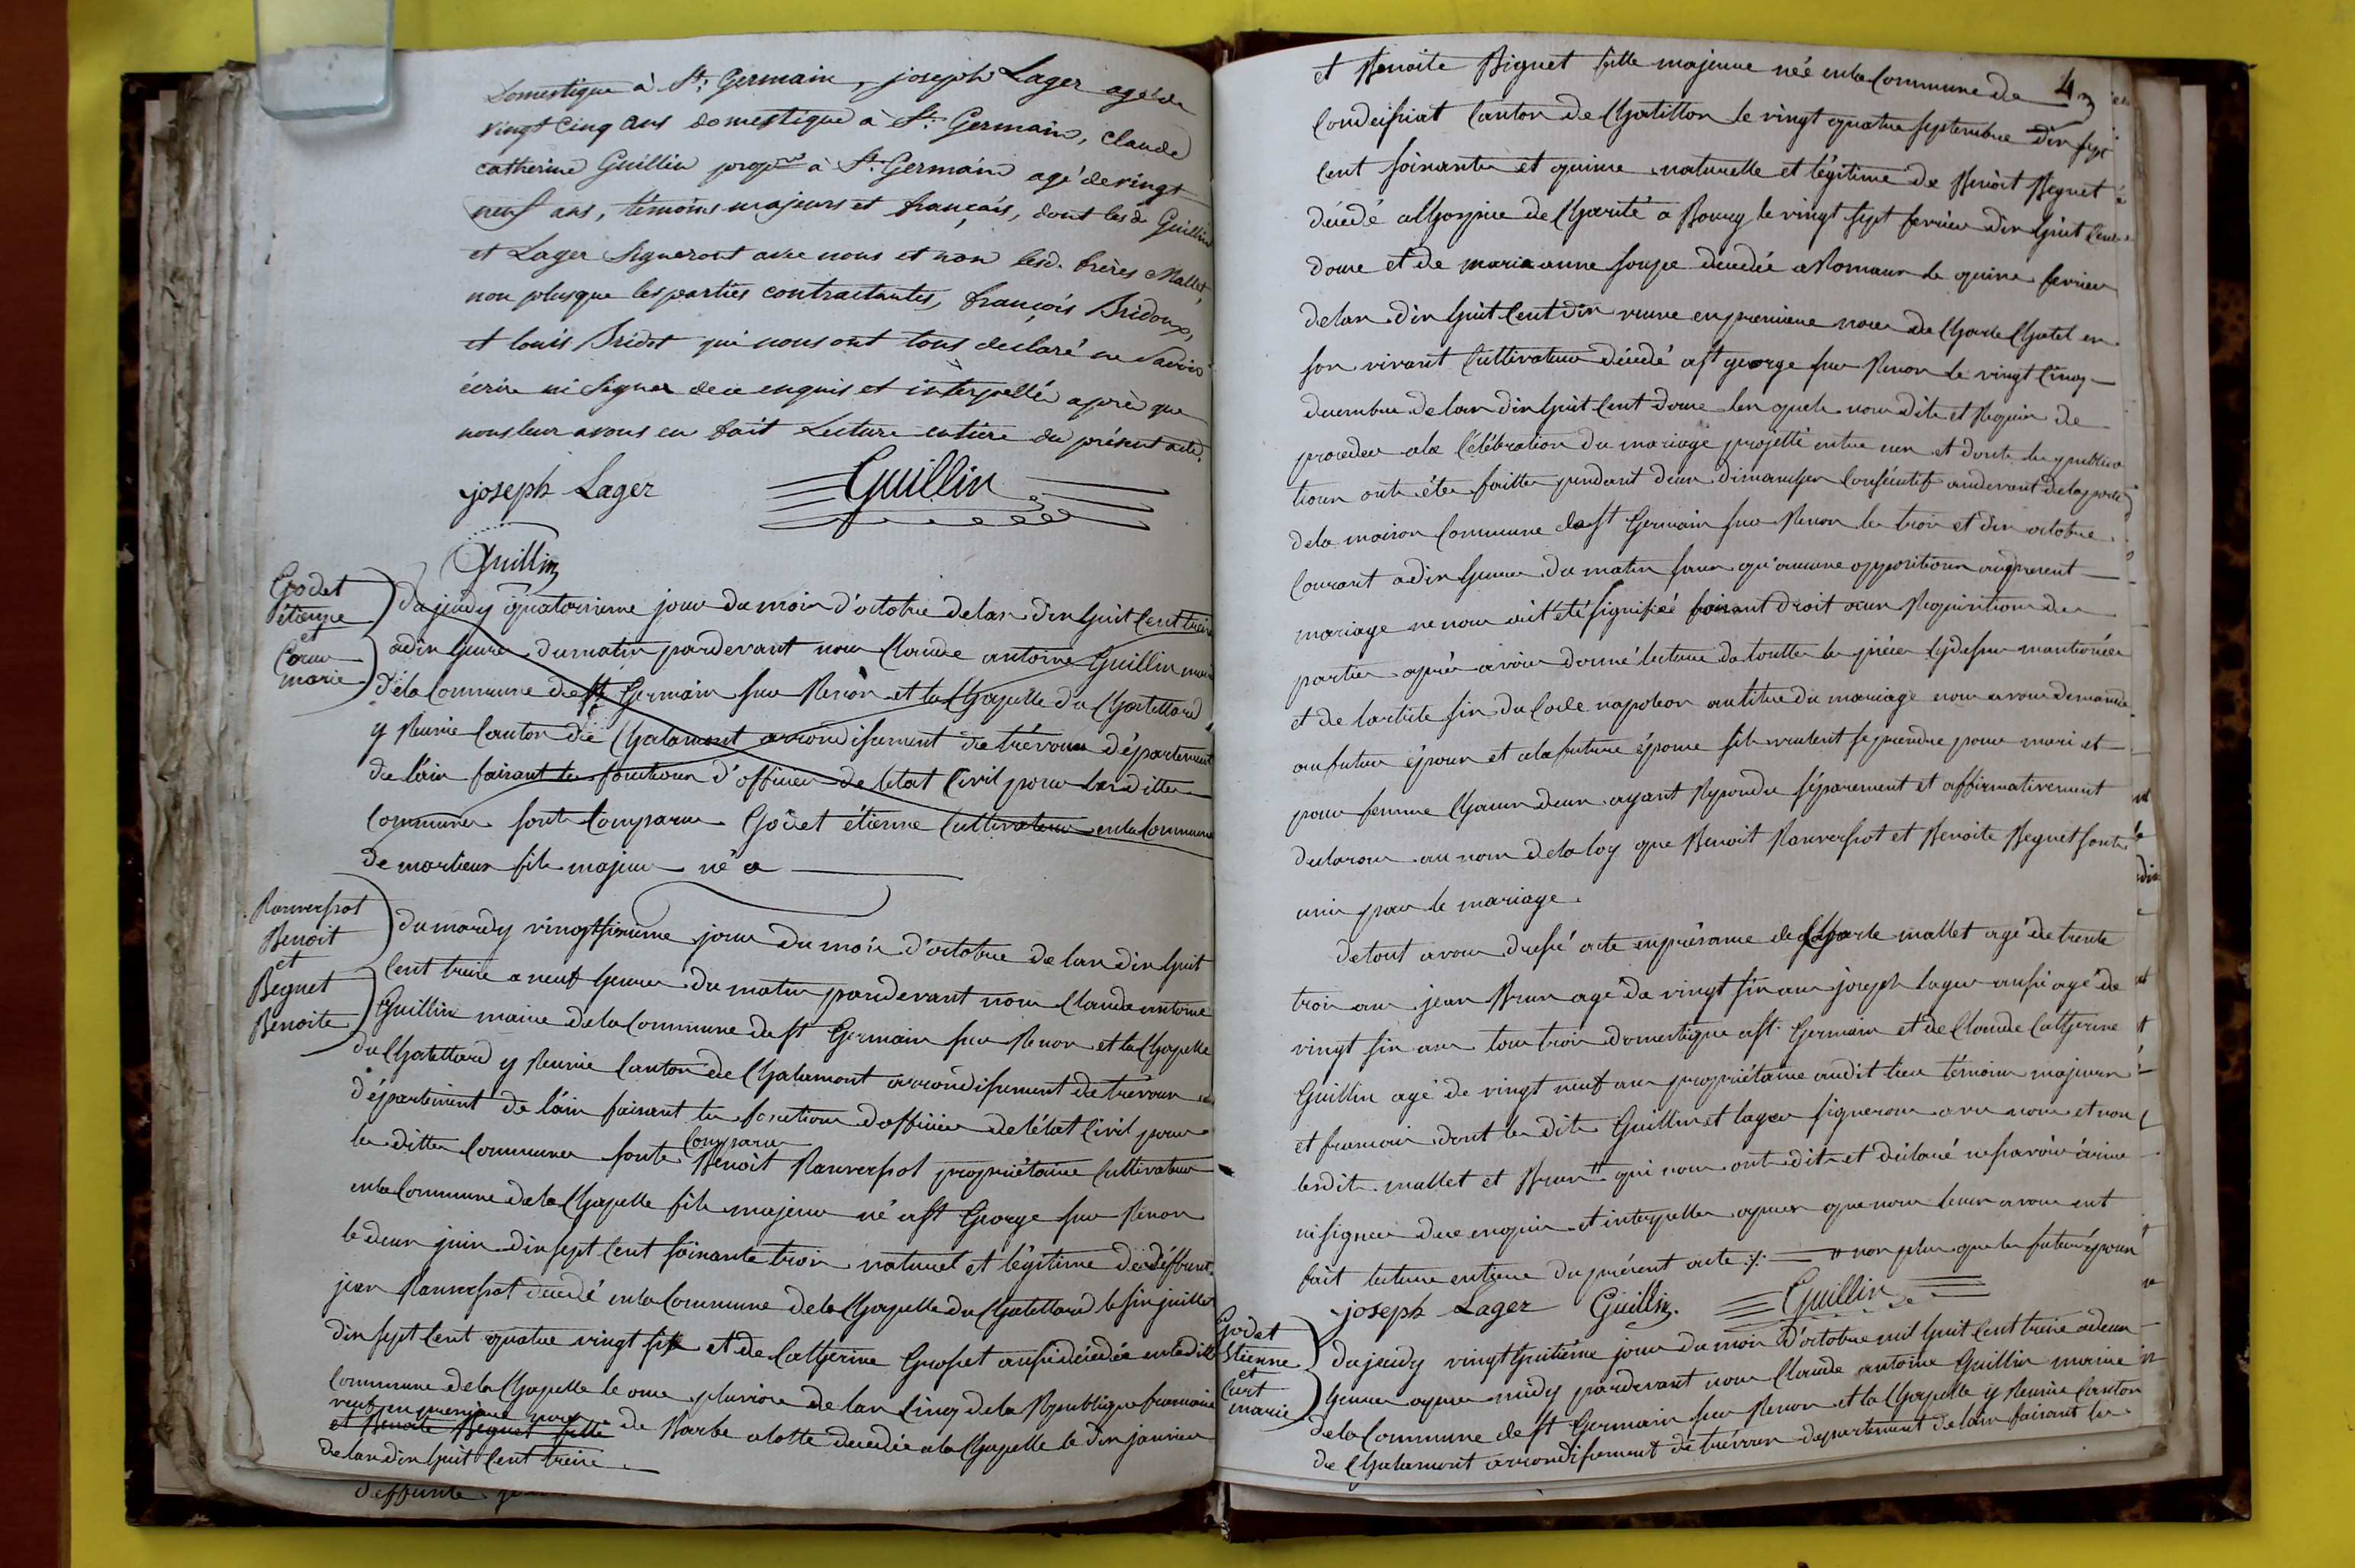 Domestique à St. Germain, joseph Lager agé de
vingt cinq ans domestique à St. Germain, Claude
catherine Guillin propre à St. Germain agé de vingt
neuf ans, témoins majeurs et français, dont lesd. Guillin
et Lager signeront avec nous et non lesd. frères Mallet,
non plus que les parties contractantes, françois Bridoux,
et louis Bridot qui nous ont tous declaré ne Savoir
écrire ni Signer de ce enquis et interpellés après que
nous leur avons eu fait Lecture entière du présent acte.
joseph Lager Guillin
Guillin
Godet
étienne
et
marie
du jeudy quatorzieme jour du mois d'octobre de lan dix huit cent treize
a dix heures du matin pardevant nous Claude antoine Guillin maire
de la Commune de St Germain sur Renon et la Chapelle du Chatellard
y Reunie Canton de Chalamont arrondissement de trévoux département
de l'ain faisant les fonctions d'officier de letat Civil pour lesdittes
Communes sont Comparus Godet étienne Cultivateur en la Commune
de marlieux fils majeur né a
Ranverssot
Benoit
et
Beguet
Benoite
du mardy vingt sixieme jour du mois d'octobre de lan dix huit
Cent treize a neuf heures du matin pardevant nous Claude antoine
Guillin maire de la Commune de St Germain sur Renon et la Chapelle
du Chatellard y Reunie Canton de Chalamont arrondissement de trévoux
département de l'ain faisant les fonctions d'officier de l'état Civil pour
les dittes Communes sont Comparus Benoit Ranverssot propriétaire Cultivateur
en la Commune de la Chapelle fils majeur né a St George sur Renon
le deux juin dix sept cent soixante trois naturel et légitime de deffunt
jean Ranverssot decedé en la Commune de la Chapelle du Chatellard le six juillet
dix sept Cent quatre vingt six et de Catherine Grosset aussi décédée en la ditte
Commune de la Chapelle le onze pluviose de lan Cinq de la Republique francaise
veuf en premiere noces
et Benoite Beguet fille de Barbe alotte decedée a la Chapelle le dix janvier
de lan dix huit Cent treize
deffunte
43
et Benoite Biguet fille majeure née en la Commune de
Condeissiat Canton de Chatillon le vingt quatre septembre dix sept
Cent soixante et quinze naturelle et légitime de Benoit Beguet
décédé a lhospice de Charité a Bourg le vingt sept fevrier dix huit Cent
douze et de marie anne soupe décedée a Romans le quinze fevrier
de lan dix huit Cent dix veuve en premiere noces de Charle Chatel en
son vivant Cultivateur décédé a St george sur Renon le vingt Cinq
decembre de lan dix huit Cent douze lesquels nous dits et Requis de
proceder a la Célébration du mariage projetté entre eux et dont les publica
tions ont été faittes pendant deux dimanches Consécutifs audevant de la porte
de la maison Commune de St Germain sur Renon les trois et dix octobre
Courant a dix heures du matin sans qu'aucune oppositions audit present
mariage ne nous ait été signifiée faisant droit a leurs Requisitions des
parties après avoir donné lecture de toutte les pièces cydessus mantionnées
et de larticle six du Code napoleon au titre du mariage nous avons demandé
au futur époux et a la future épouse sils veulent se prendre pour mari et
pour femme Chacun deux ayant Repondu séparement et affirmativement
declarons au nom de la loy que Benoit Ranverssot et Benoite Beguet sont
unis par le mariage.
de tout avons dressé acte en présance de Charle mallet agé de trente
trois ans jean Brun agé de vingt six ans joseph lager aussi agé de
vingt six ans tous trois domestique a St. Germain et de Claude Catherine
Guillin agé de vingt neuf ans propriétaire audit lieu témoins majeurs
et francais dont les dits Guillin et lager signerons avec nous et non
lesdits mallet et Brun # qui nous ont dits et déclaré ne savoir écrire
ni signer de ce enquis et interpellés apres que nous leurs avons eut
fait lecture entiere du présent acte ./. # non plus que les futurs époux
joseph Lager Guillin. Guillin
Godet
Etienne
et
Curt
marie
du jeudy vingt huitième jour du mois d'octobre mil huit Cent treize a deux
heures apres midy pardevant nous Claude antoine Guillin maire
de la Commune de St Germain sur Renon et la Chapelle y Reunie Canton
de Chalamont arrondissement de trévoux departement de lain faisant les